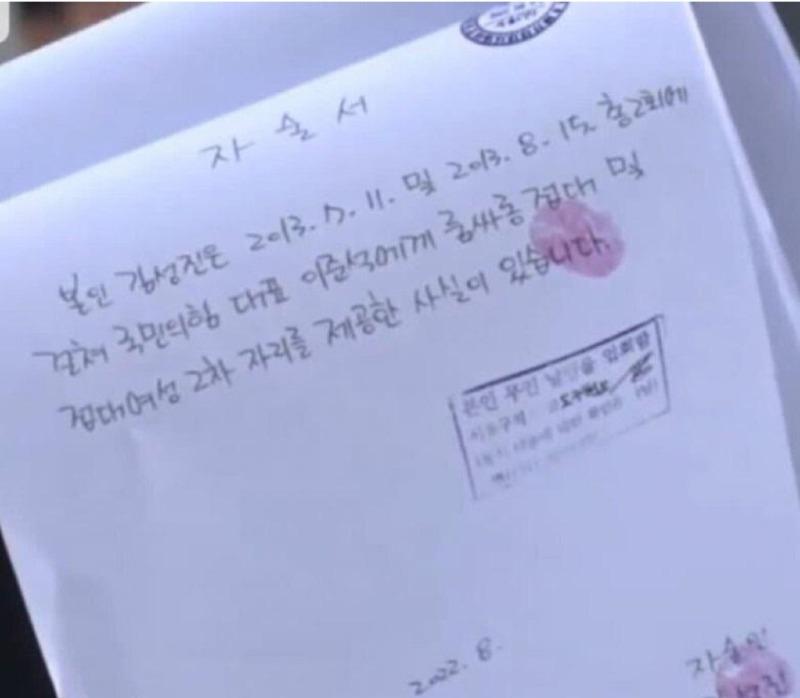 자술서
본인 김성진은 2013. 7. 11. 및 2013. 8. 15. 총2회에
걸쳐 국민의힘 대표 이준석에게 룸싸롱 접대 및
접대여성 2차 자리를 제공한 사실이 있습니다.
본인 무인
2022. 8.
자술인